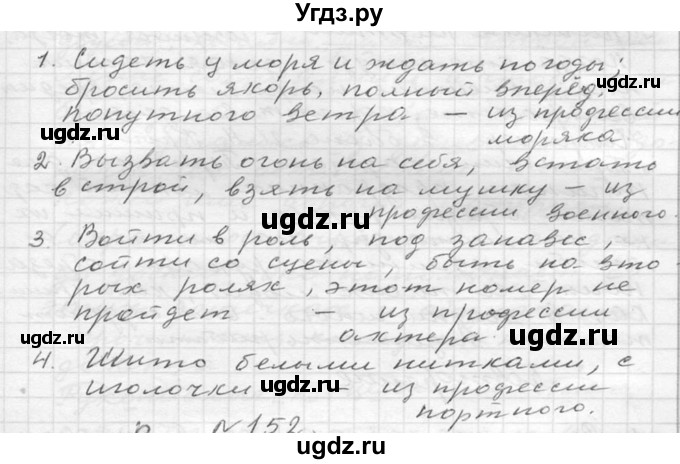 Угдз.ру
1. Сидеть у моря и ждать погоды;
бросить якорь, полный вперёд,
попутного ветра – из профессии
моряка
ugdz.ru
ugdz.ru
2. Вызвать огонь на себя, встать
в строй, взять на мушку – из
профессии военного.
ugdz.ru
3. Войти в роль, под занавес,
сойти со сцены, быть на вто-
рых ролях, этот номер не
пройдет – из профессии
актера.
ugdz.ru
ugdz.ru
4. Шито белыми нитками, с
иголочки – из профессии
портного.
ugdz.ru
ugdz.ru
№152.
ugdz.ru